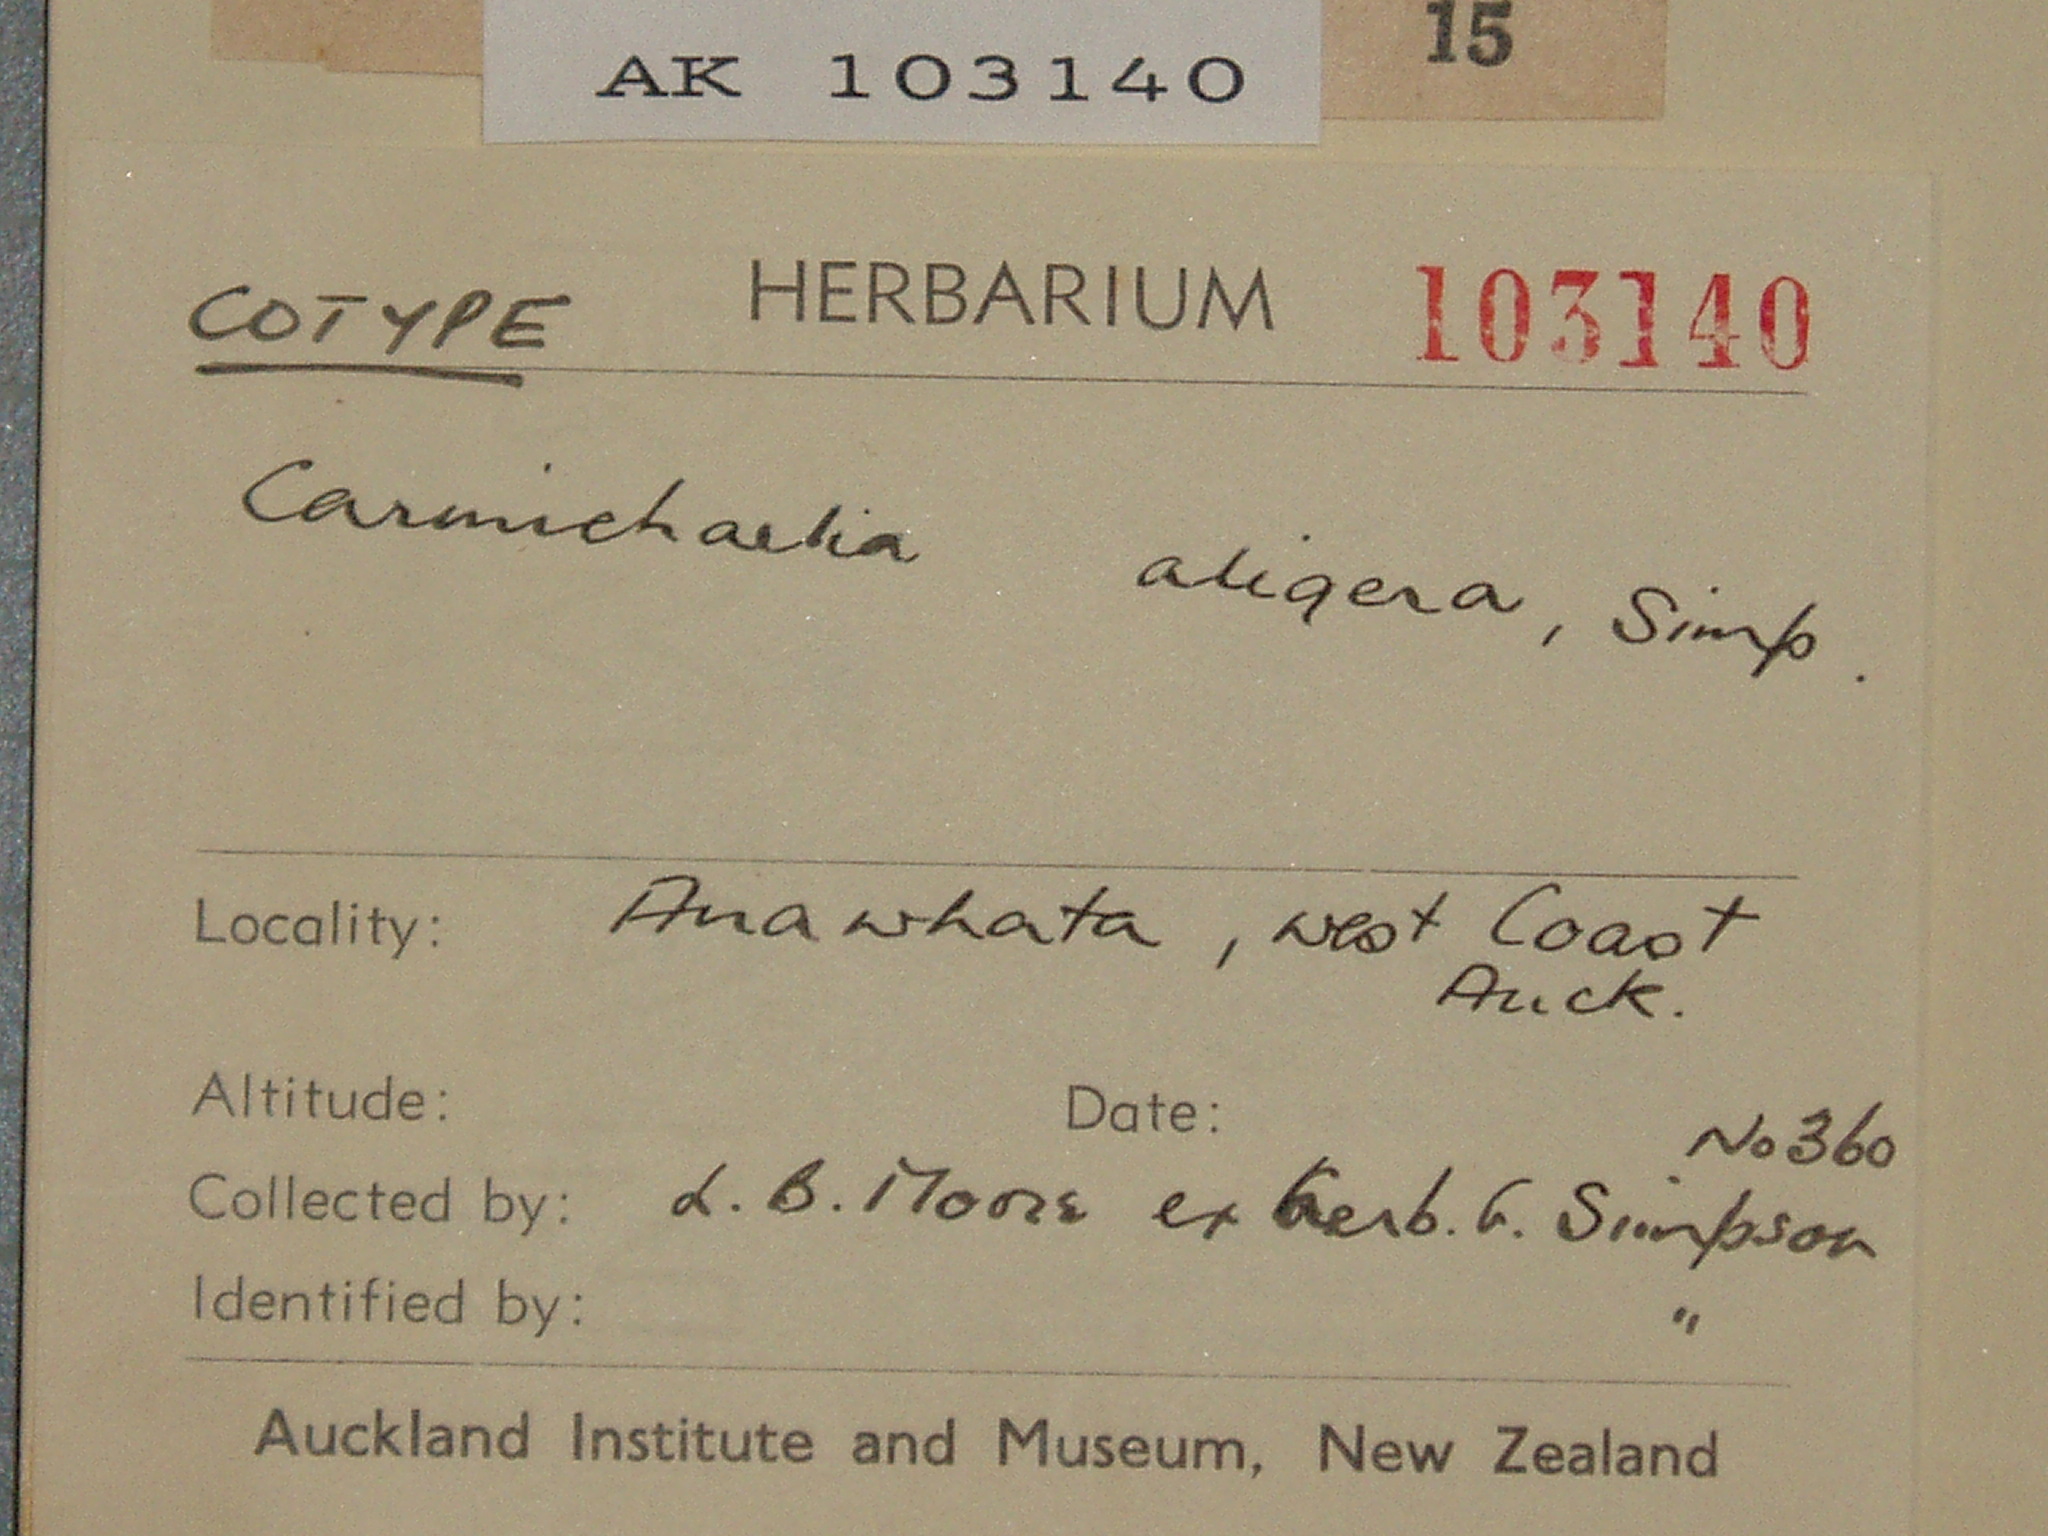 15
AK 103140
COTYPE HERBARIUM 103140
Carmichaelia aligera, Simp.
Locality: Anawhata, west Coast
Auck.
Altitude: Date:
No 360
Collected by: L. B. Moore ex herb. G. Simpson
Identified by: "
Auckland Institute and Museum, New Zealand